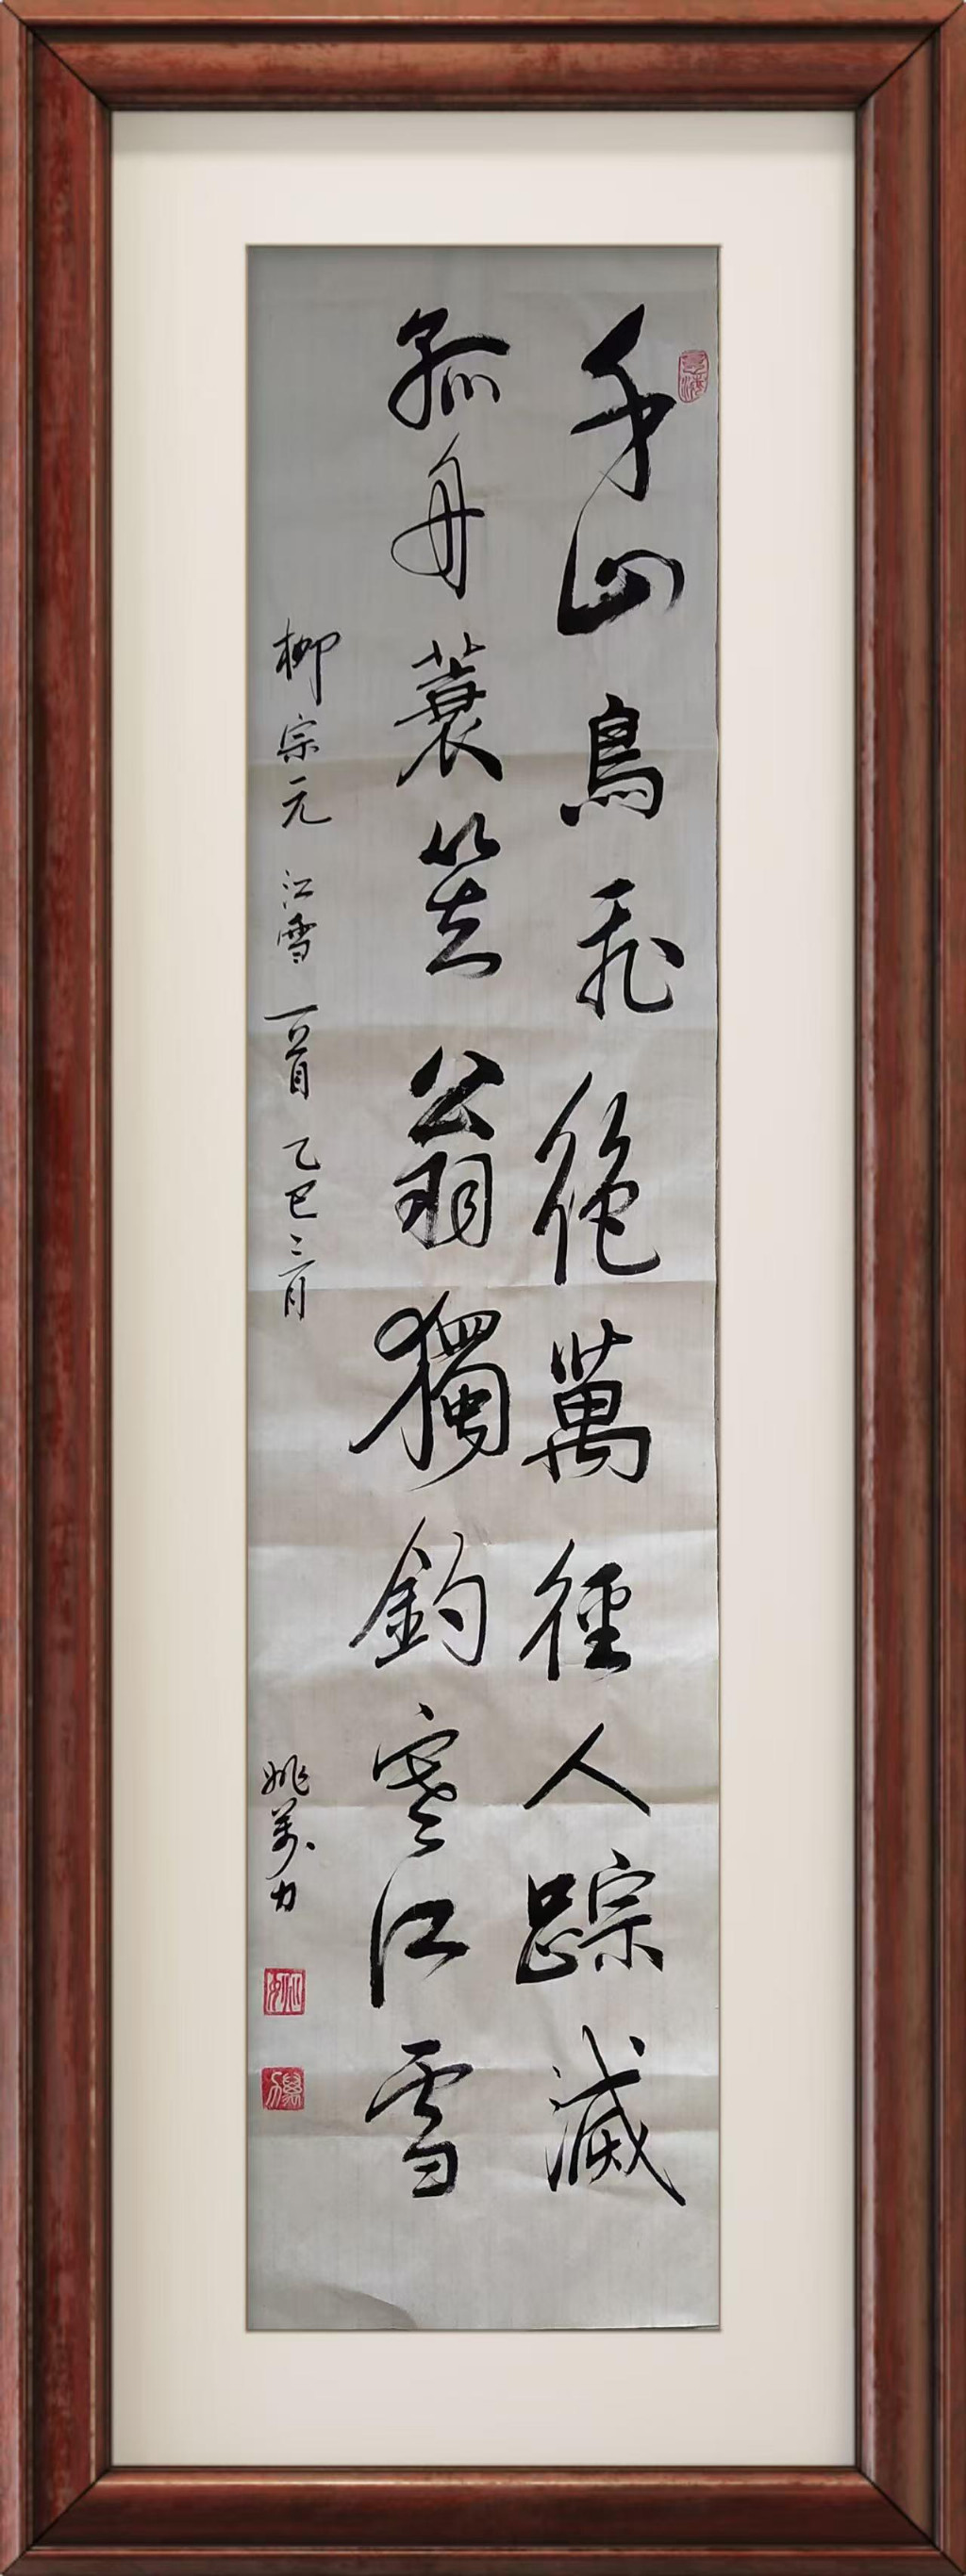 千山鳥飛絶萬徑人踪滅
孤舟蓑笠翁獨釣寒江雪
柳宗元 江雪 一首 乙巳三月
姚萬力
姚
萬力